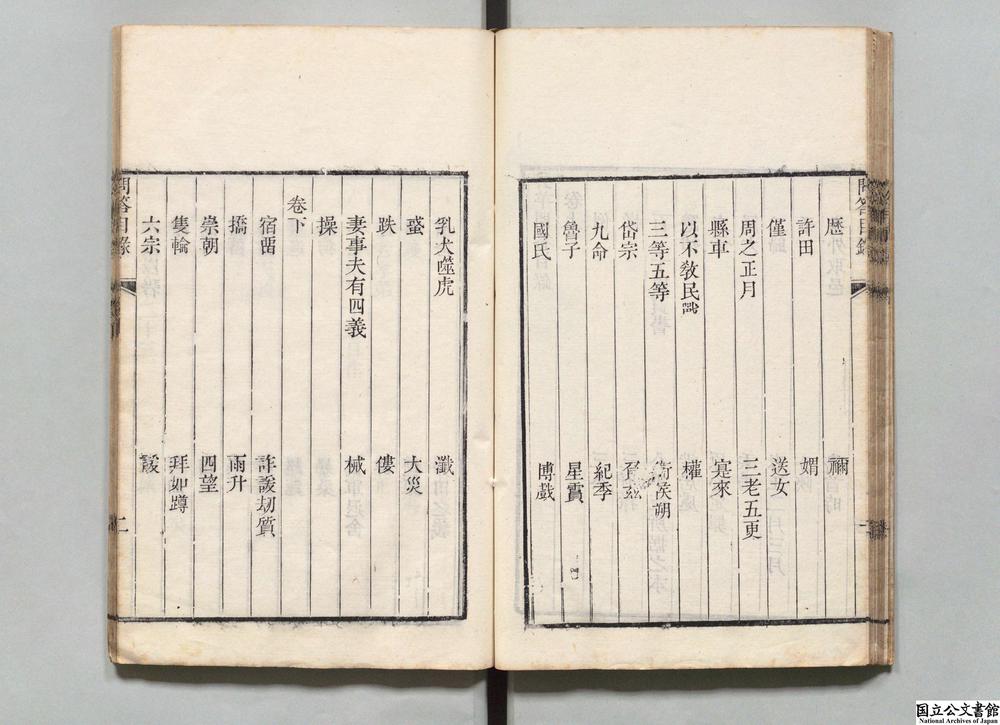 歷 禰
許田 媦
僅 送女
周之正月 三老五更
縣車 寔來
以不敎民戰 權
三等五等 衛侯朔
岱宗 負茲
九命 紀季
魯子 星霣
國氏 博戲
問答目錄
乳犬噬虎 瀸
蠆 大災
跌 僂
妻事夫有四義 械
操
卷下
宿留 詐諼劫質
撟 雨升
崇朝 四望
隻輪 拜如蹲
六宗 諼
問答目錄 二
国立公文書館
National Archives of Japan